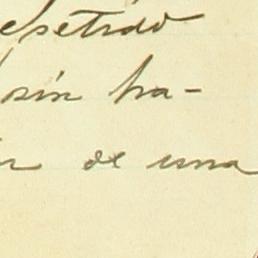 epetido
sin ha-
de una